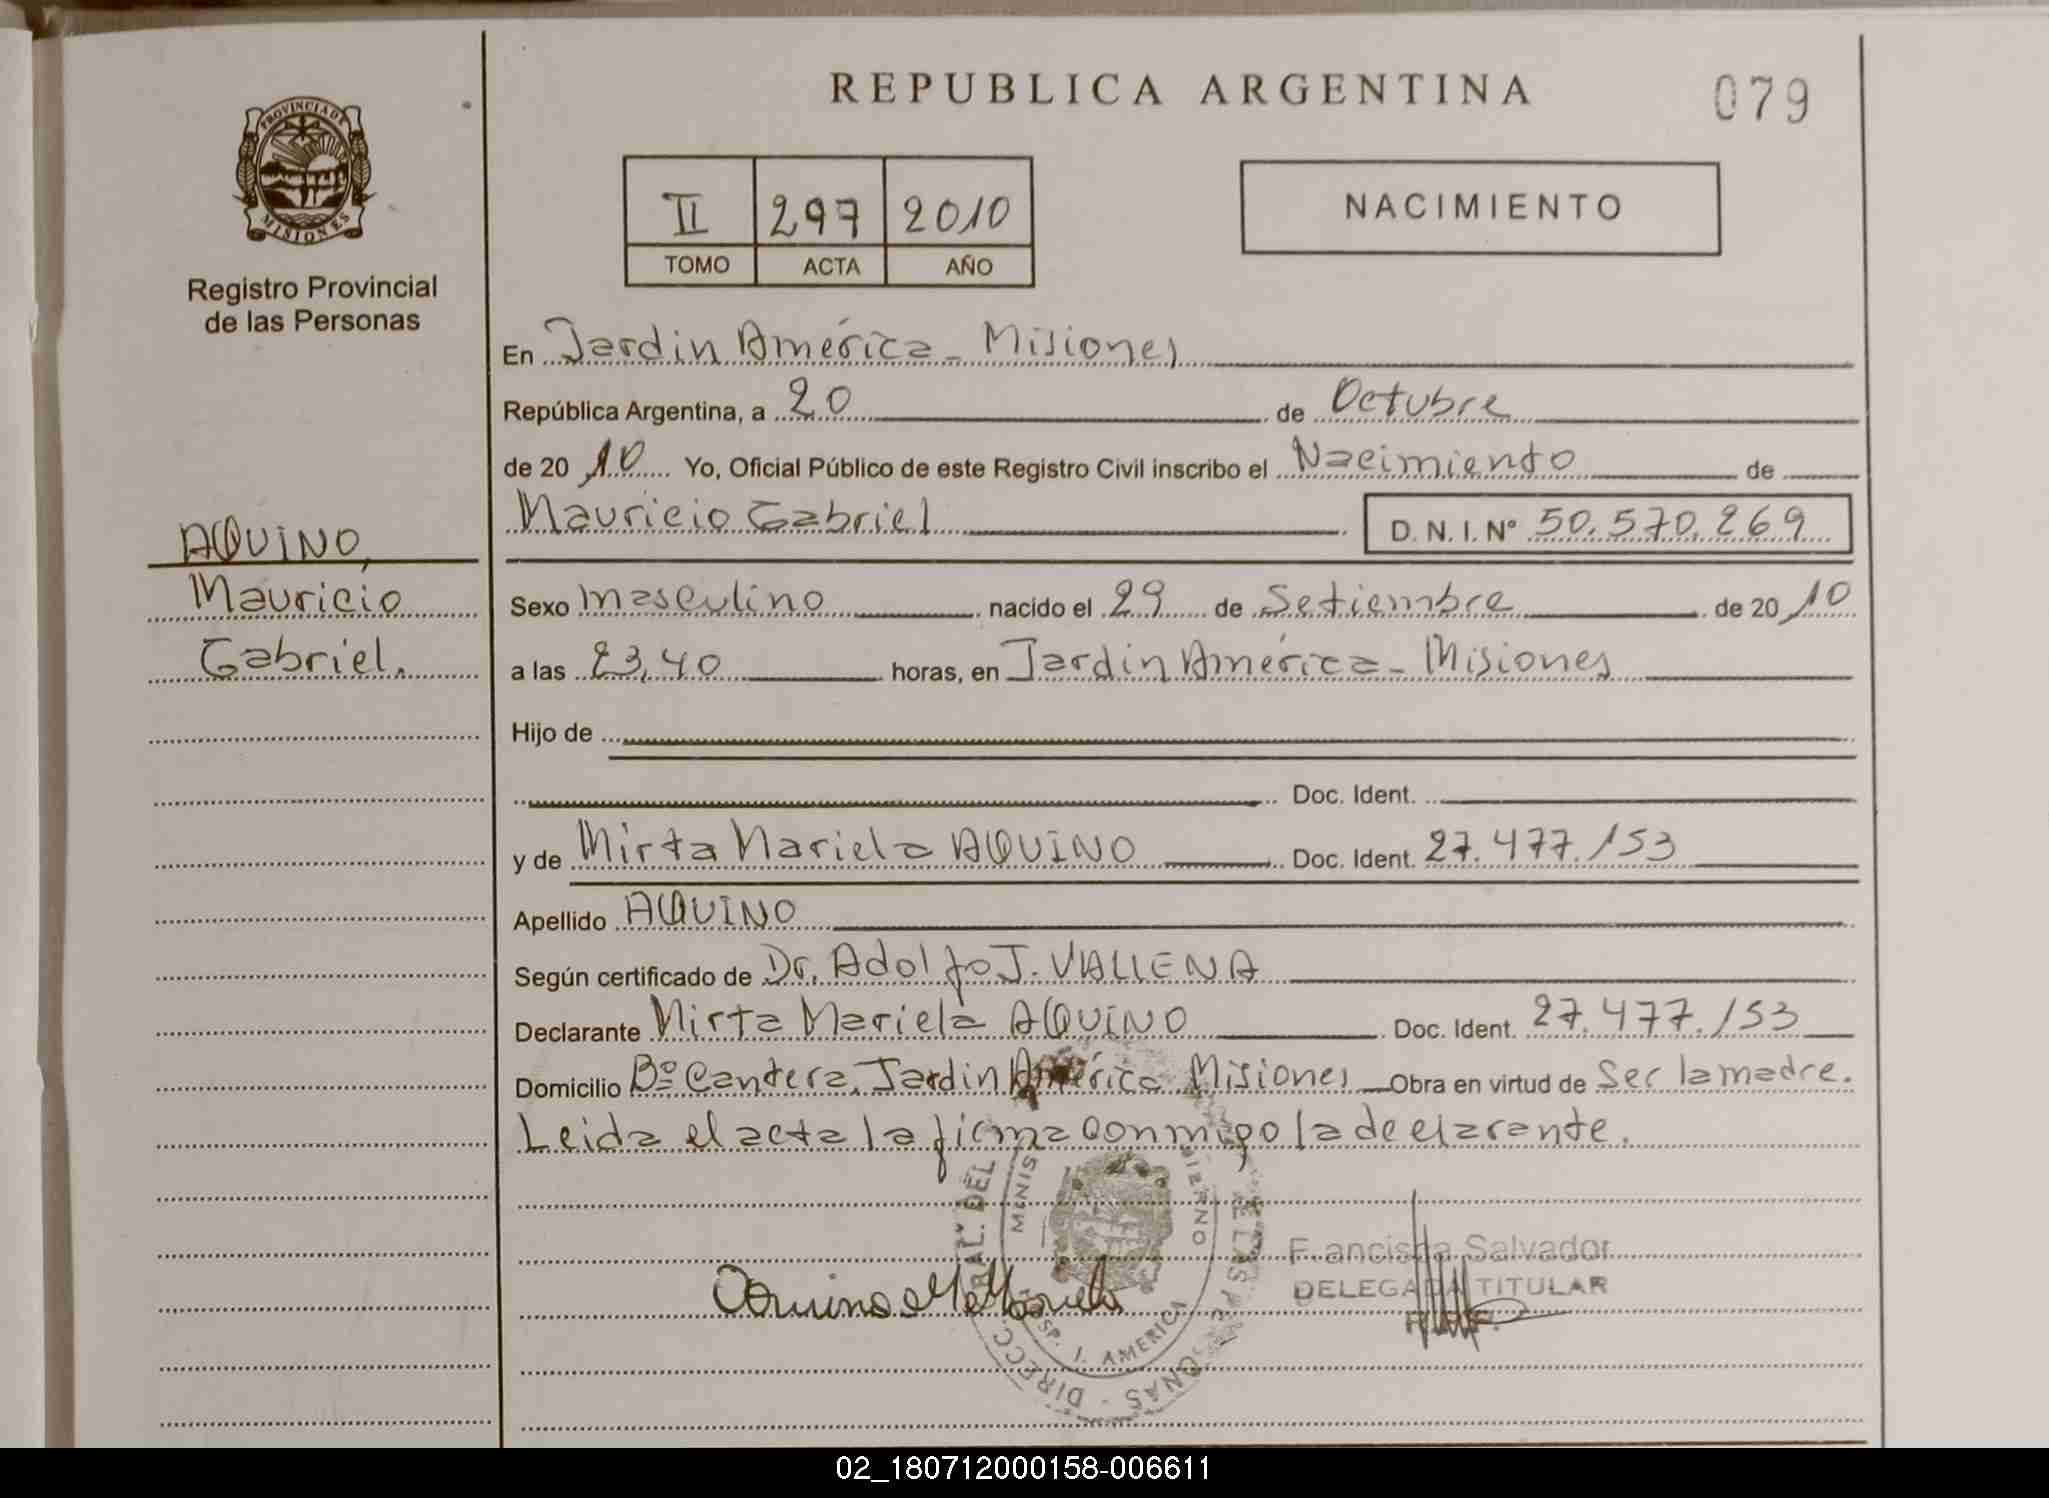 REPUBLICA ARGENTINA
079
PROVINCIA DE MISIONES
Registro Provincial
de las Personas
II 297 2010
TOMO ACTA AÑO
NACIMIENTO
En Jardin América - Misiones
República Argentina, a 20 de Octubre
de 20 10 Yo, Oficial Público de este Registro Civil inscribo el Nacimiento de
Mauricio Gabriel D.N.I. Nº 50.570.269
AQUINO,
Mauricio
Gabriel.
Sexo masculino nacido el 29 de Setiembre de 20 10
a las 23,40 horas, en Jardin América - Misiones
Hijo de
Doc. Ident.
y de Mirta Mariela AQUINO Doc. Ident. 27.477.153
Apellido AQUINO
Según certificado de Dr. Adolfo J. VALLENA
Declarante Mirta Mariela AQUINO Doc. Ident. 27.477.153
Domicilio Bº Cantera, Jardin América Misiones Obra en virtud de Ser la madre.
Leida el acta la firma conmigo la declarante.
Francisca Salvador
DELEGADA TITULAR
02_180712000158-006611